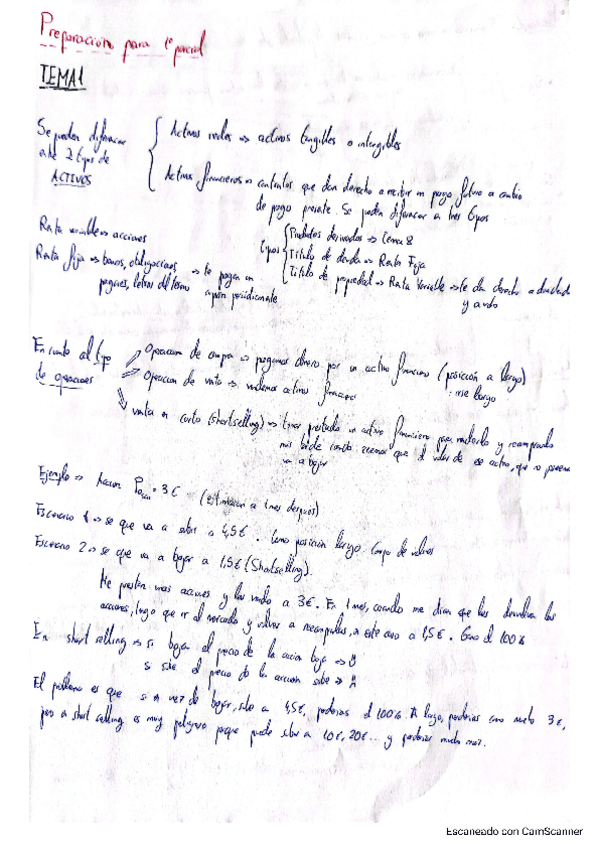 Preparación para 1º parcial
TEMA 1
Se pueden diferenciar
entre 2 tipos de
ACTIVOS
Activos reales => activos tangibles o intangibles
Activos financieros => contratos que dan derecho a recibir un pago futuro a cambio
de pago presente. Se pueden diferenciar a tres tipos
tipos
Productos derivados => tema 8
Título de deuda => Renta Fija
Título de propiedad => Renta Variable => te da derecho a dividend
y a voto
Renta variable => acciones
Renta fija => bonos, obligaciones,
pagarés, letras del tesoro
=> te pagan un
cupón periódicamente
En cuanto al tipo
de operaciones
Operación de compra => pagamos dinero por un activo financiero (posición a largo)
: irse largo
Operación de venta => vendemos activo financiero
venta en corto (Shortselling) => tomar prestado un activo financiero para venderlo y recomprarlo
más tarde cuando creemos que el valor de ese activo, que no poseemos
va a bajar
Ejemplo => Acción P = 3€ (estimación a 1 mes después)
Escenario 1 => se que va a subir a 4,5€. Tomo posición larga. Compro de valores
Escenario 2 => se que va a bajar a 1,5€ (Shortselling).
Me prestan unas acciones y las vendo a 3€. En 1 mes, cuando me dicen que les devuelva las
acciones, tengo que ir al mercado y volver a recomprarlas, en este caso a 1,5€. Gano el 100%
En short selling => si baja el precio de la acción baja =>
si sube el precio de la acción sube =>
El problema es que si en vez de bajar, sube a 4,5€, perderías el 100%. A largo, perderías como mucho 3€,
pero a short selling es muy peligroso porque puede subir a 10€, 20€... y perderías mucho más.
Escaneado con CamScanner